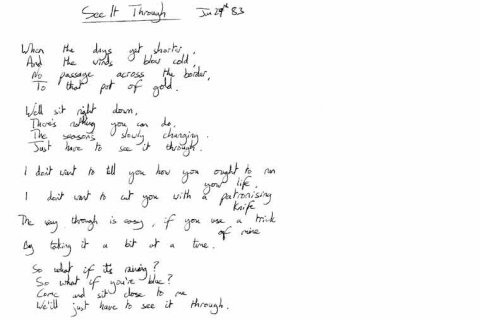 See It Through Jan 29th 83
When the days get shorter,
And the winds blow cold,
No passage across the border,
To that pot of gold.
We'll sit right down,
There's nothing you can do,
The seasons slowly changing.
Just have to see it through.
I don't want to tell you how you ought to run
your life,
I don't want to cut you with a patronising
knife
The way through is easy, if you use a trick
of mine
By taking it a bit at a time.
So what if it's raining?
So what if you're blue?
Come and sit close to me
We'll just have to see it through.